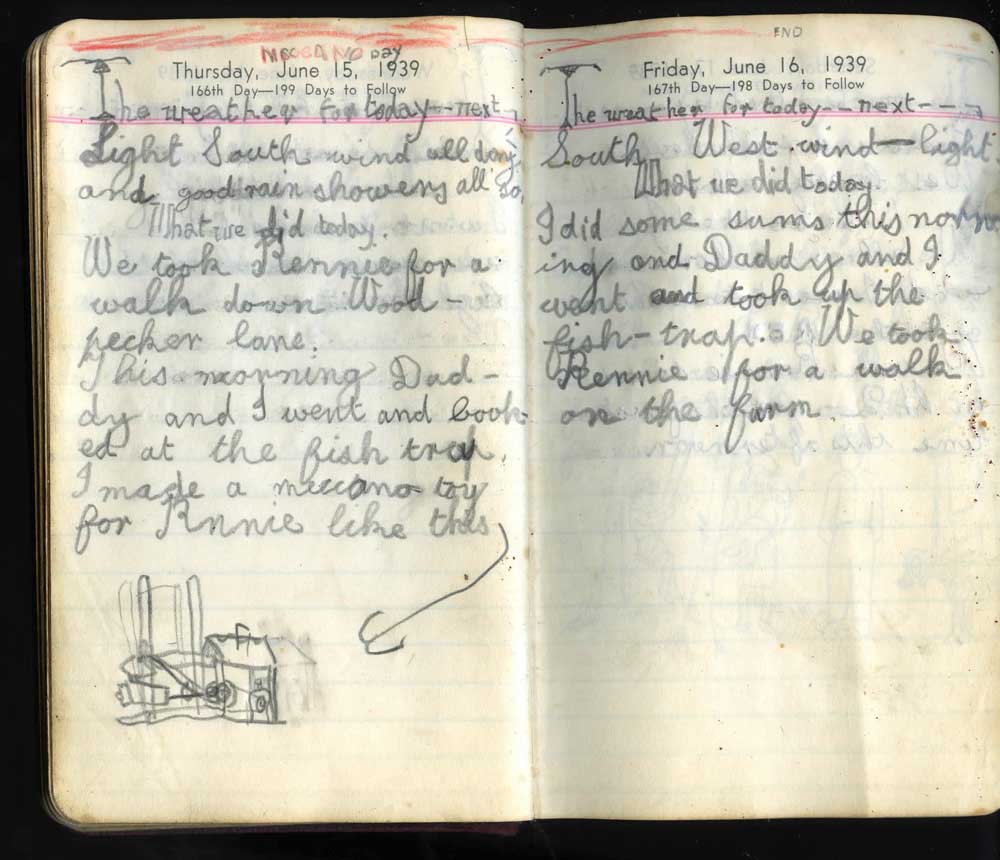 MECCANO DAY
Thursday, June 15, 1939
166th Day—199 Days to Follow
The weather for today--next-
Light South wind all day,
and good rain showers all so,
What we did today.
We took Rennie for a
walk down Wood-
pecker lane.
This morning Dad-
dy and I went and look-
ed at the fish trap.
I made a meccano toy
for Rnnie like this
END
Friday, June 16, 1939
167th Day—198 Days to Follow
The weather for today--next---
South West wind—light
What we did today.
I did some sums this
ing and Daddy and I
went and took up the
fish-trap. We took
Rennie for a walk
on the farm.